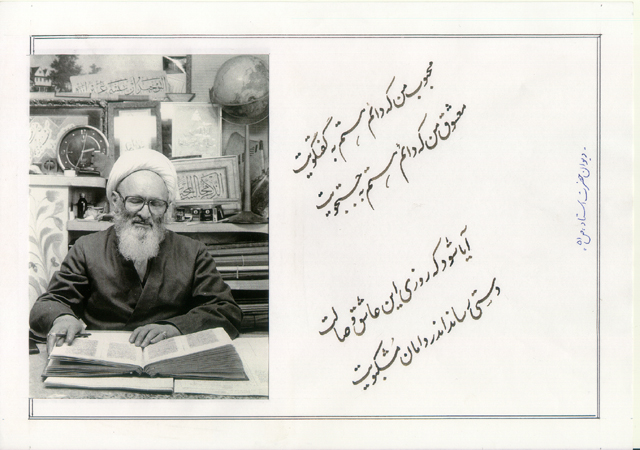 محبوب من که دائم هستم به گفتگویت
معشوق من که دائم هستم به جستجویت
آیا شود که روزی این عاشق وصالت
دستی رساند اندر دامان مشکبویت
دیوان حضرت استاد، ص